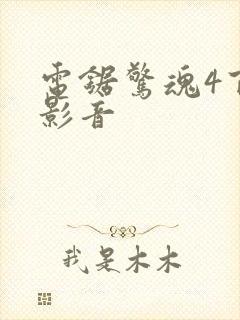 電鋸驚魂4下
影音
我是木木